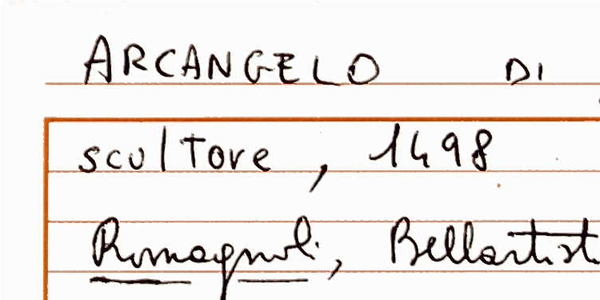 ARCANGELO DI
scultore, 1498
Romagnoli, Bellartist